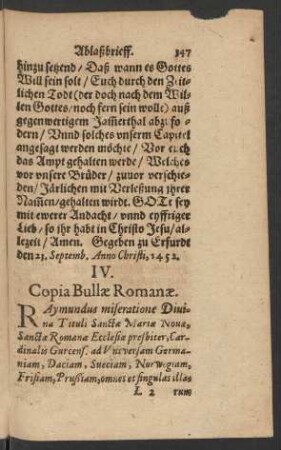 Ablaßbrieff. 147
hinzu setzend / Daß wann es Gottes
Will sein solt / Euch durch den Zeit-
lichen Todt (der doch nach dem Wil-
len Gottes / noch fern sein wolle) auß
gegenwertigem Jam̃erthal abzufo-
dern / Vnnd solches vnserm Capitel
angesagt werden möchte / Vor euch
das Ampt gehalten werde / Welches
vor vnsere Brüder / zuuor verschie-
den / Järlichen mit Verleßung ihrer
Nam̃en / gehalten wirdt. GOTt sey
mit ewerer Andacht / vnnd eyffriger
Lieb / so ihr habt in Christo Jesu / al-
lezeit / Amen. Gegeben zu Erfurdt
den 21. Septemb. Anno Christi, 1452.
IV.
Copia Bullæ Romanæ.
RAymundus miseratione Diui-
na Tituli Sanctæ Mariæ Nouæ,
Sanctæ Romanæ Ecclesiæ presbiter, Car-
dinalis Gurcens. ad Vniversam Germa-
niam, Daciam, Sueciam, Norwegiam,
Frisiam, Prussiam, omnes et singulas illas
L 2 rum